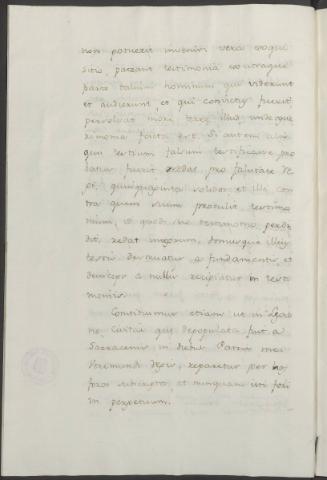 non potuerit inveniri vera exqui
sitio, parcant testimonia ex utraque
parte talium hominum qui viderunt
et audierunt, et qui convictus fuerit
persolvat
Si autem ali
quis testium falsum testificasse pro
batus fuerit reddat pro falsitate
quinquaginta solidos, et ille con
tra quem suum protulit testimo
nium, et quod testimonio perdi
dit, reddat integrum, domusque illius
testis destruatur a fundamentis, et
deinceps a nullis recipiatur in testi
monium.
Constituimus etiam ut in Legio
ne Civitas quæ depopulata fuit a
Sarracenis in diebus Patris mei
Veremundi Regis, repopuletur per hos
foros subscriptos, et nunquam isti fori
in perpetuum.